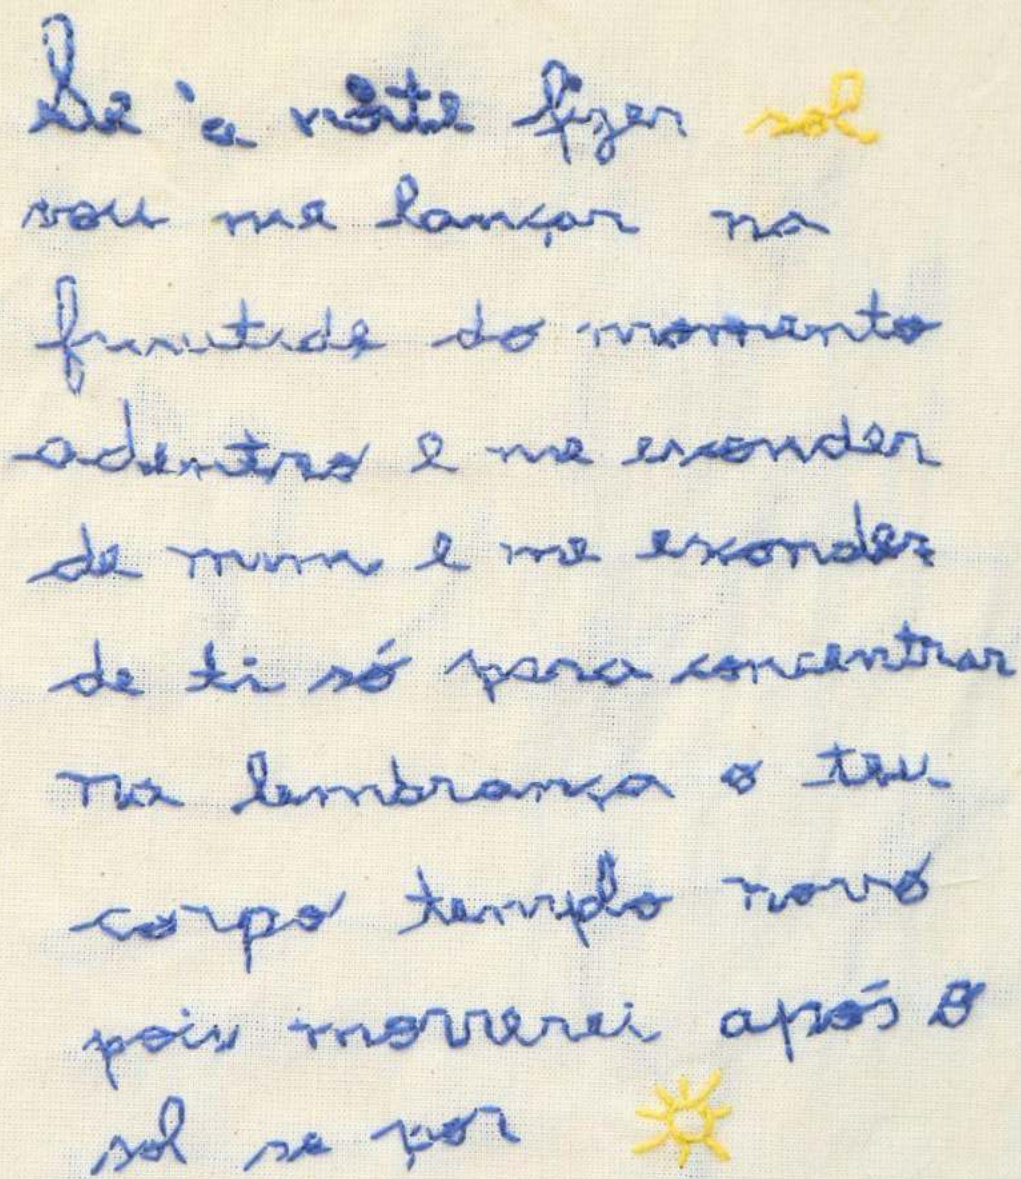 Se à noite fizer sol
vou me lançar na
finitude do momento
adentro e me esconder
de mim e me esconder
de ti só para concentrar
na lembrança o teu
corpo templo novo
pois morrerei após o
sol se por